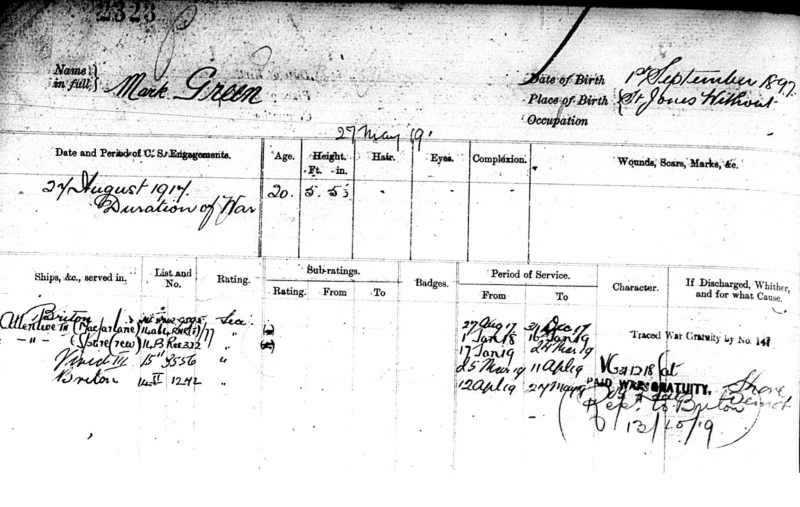 2323
Name in full} Mark Green
Date of Birth 1st September 1897.
Place of Birth {St Jones Without
Occupation
27 May 191
Date and Period of C. S. Engagements. Age. Height. Ft. in. Hair. Eyes. Complexion. Wounds, Scars, Marks, &c.
27 August 1917. 20. 5. 5½
Duration of War
Ships, &c., served in. List and No. Rating. Sub-ratings. Rating. From To Badges. Period of Service. From To Character. If Discharged, Whither, and for what Cause.
Briton Sea 27 Aug 17 31 Dec 17
Attentive III (Macfarlane) " 1 Jan 18 16 Jan 19 Traced War Gratuity by No. 147
" (Store Crew) " 17 Jan 19 24 Mar 19
Vivid III 15" 9556 " 25 Mar 19 11 Ap 19 VG 31.12.18
Briton 1272 " 12 Ap 19 27 May 19 PAID WAR GRATUITY. Shore
Demob
to Briton
13/10/19